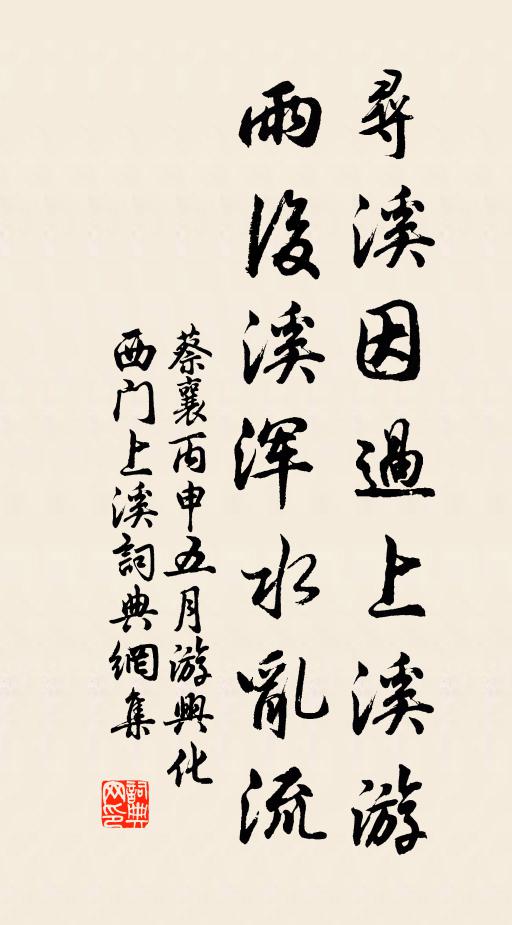 尋溪因過上溪游
雨後溪浑水亂流
蔡襄丙申五月游興化
西门上溪詞典網集
詞典
网印